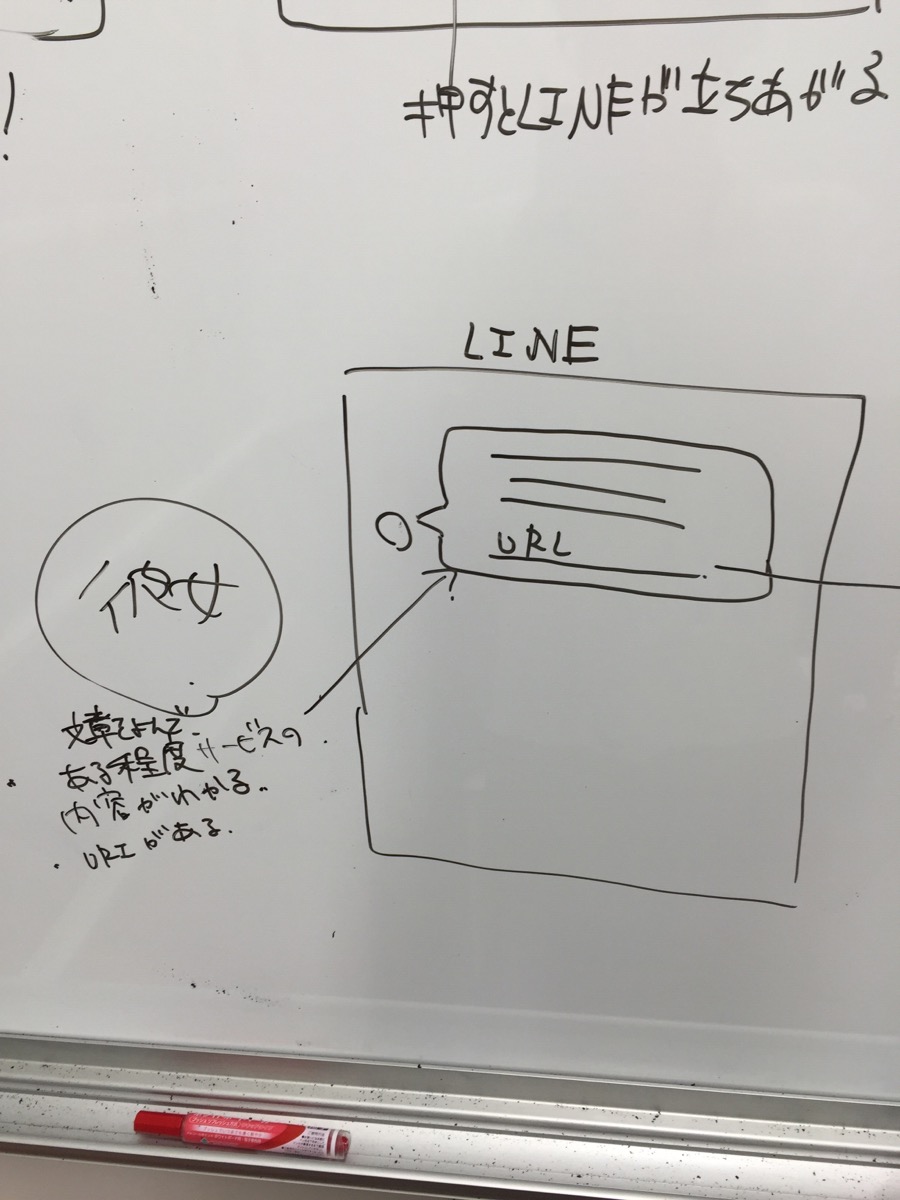 !
押すとLINEが立ちあがる
LINE
URL
彼女
文章をよんで
ある程度サービスの
内容がわかる。
・URIがある.